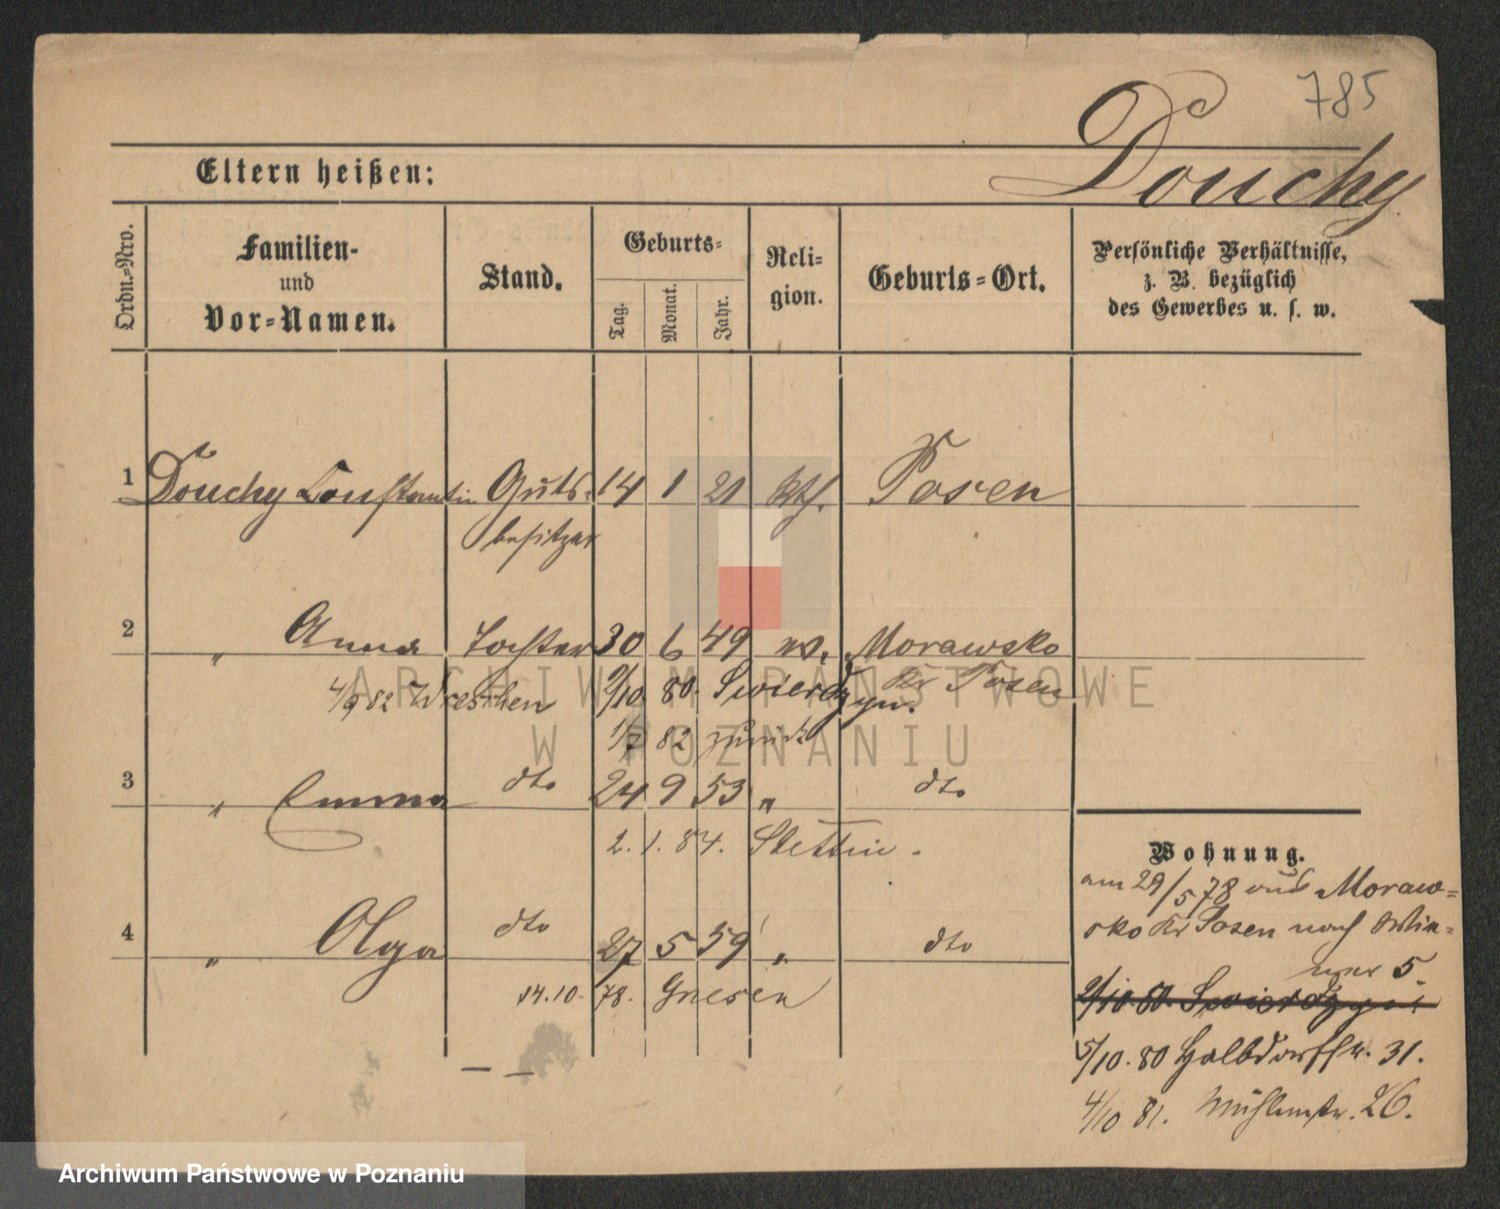 785
Douchy
Eltern heißen:
Ordn.-Nro.
Familien-
und
Vor-Namen.
Stand.
Geburts-
Tag.
Monat.
Jahr.
Reli-
gion.
Geburts-Ort.
Persönliche Verhältnisse,
z. B. bezüglich
des Gewerbes u. s. w.
1 Douchy Constantin Guts- 14 1 21 kth. Posen
besitzer
2 " Anna Tochter 30 6 49 Morawsko
Kr Posen
4/9 82 Wreschen 9/10. 80. Swierdzyn.
1/7 82 zurück
3 " Emma dto 24 9 53 " dto
2. 1. 84. Stettin.
4 " Olga dto 27 5 59 " dto
14. 10. 78. Gnesen
Wohnung.
am 29/5 78 aus Moraw-
sko Kr Posen nach
5
2/10. 80. Swierdzyn
5/10. 80 Halbdorfstr. 31.
4/10 81. Mühlenstr. 26.
ARCHIWUM PAŃSTWOWE
W POZNANIU
Archiwum Państwowe w Poznaniu